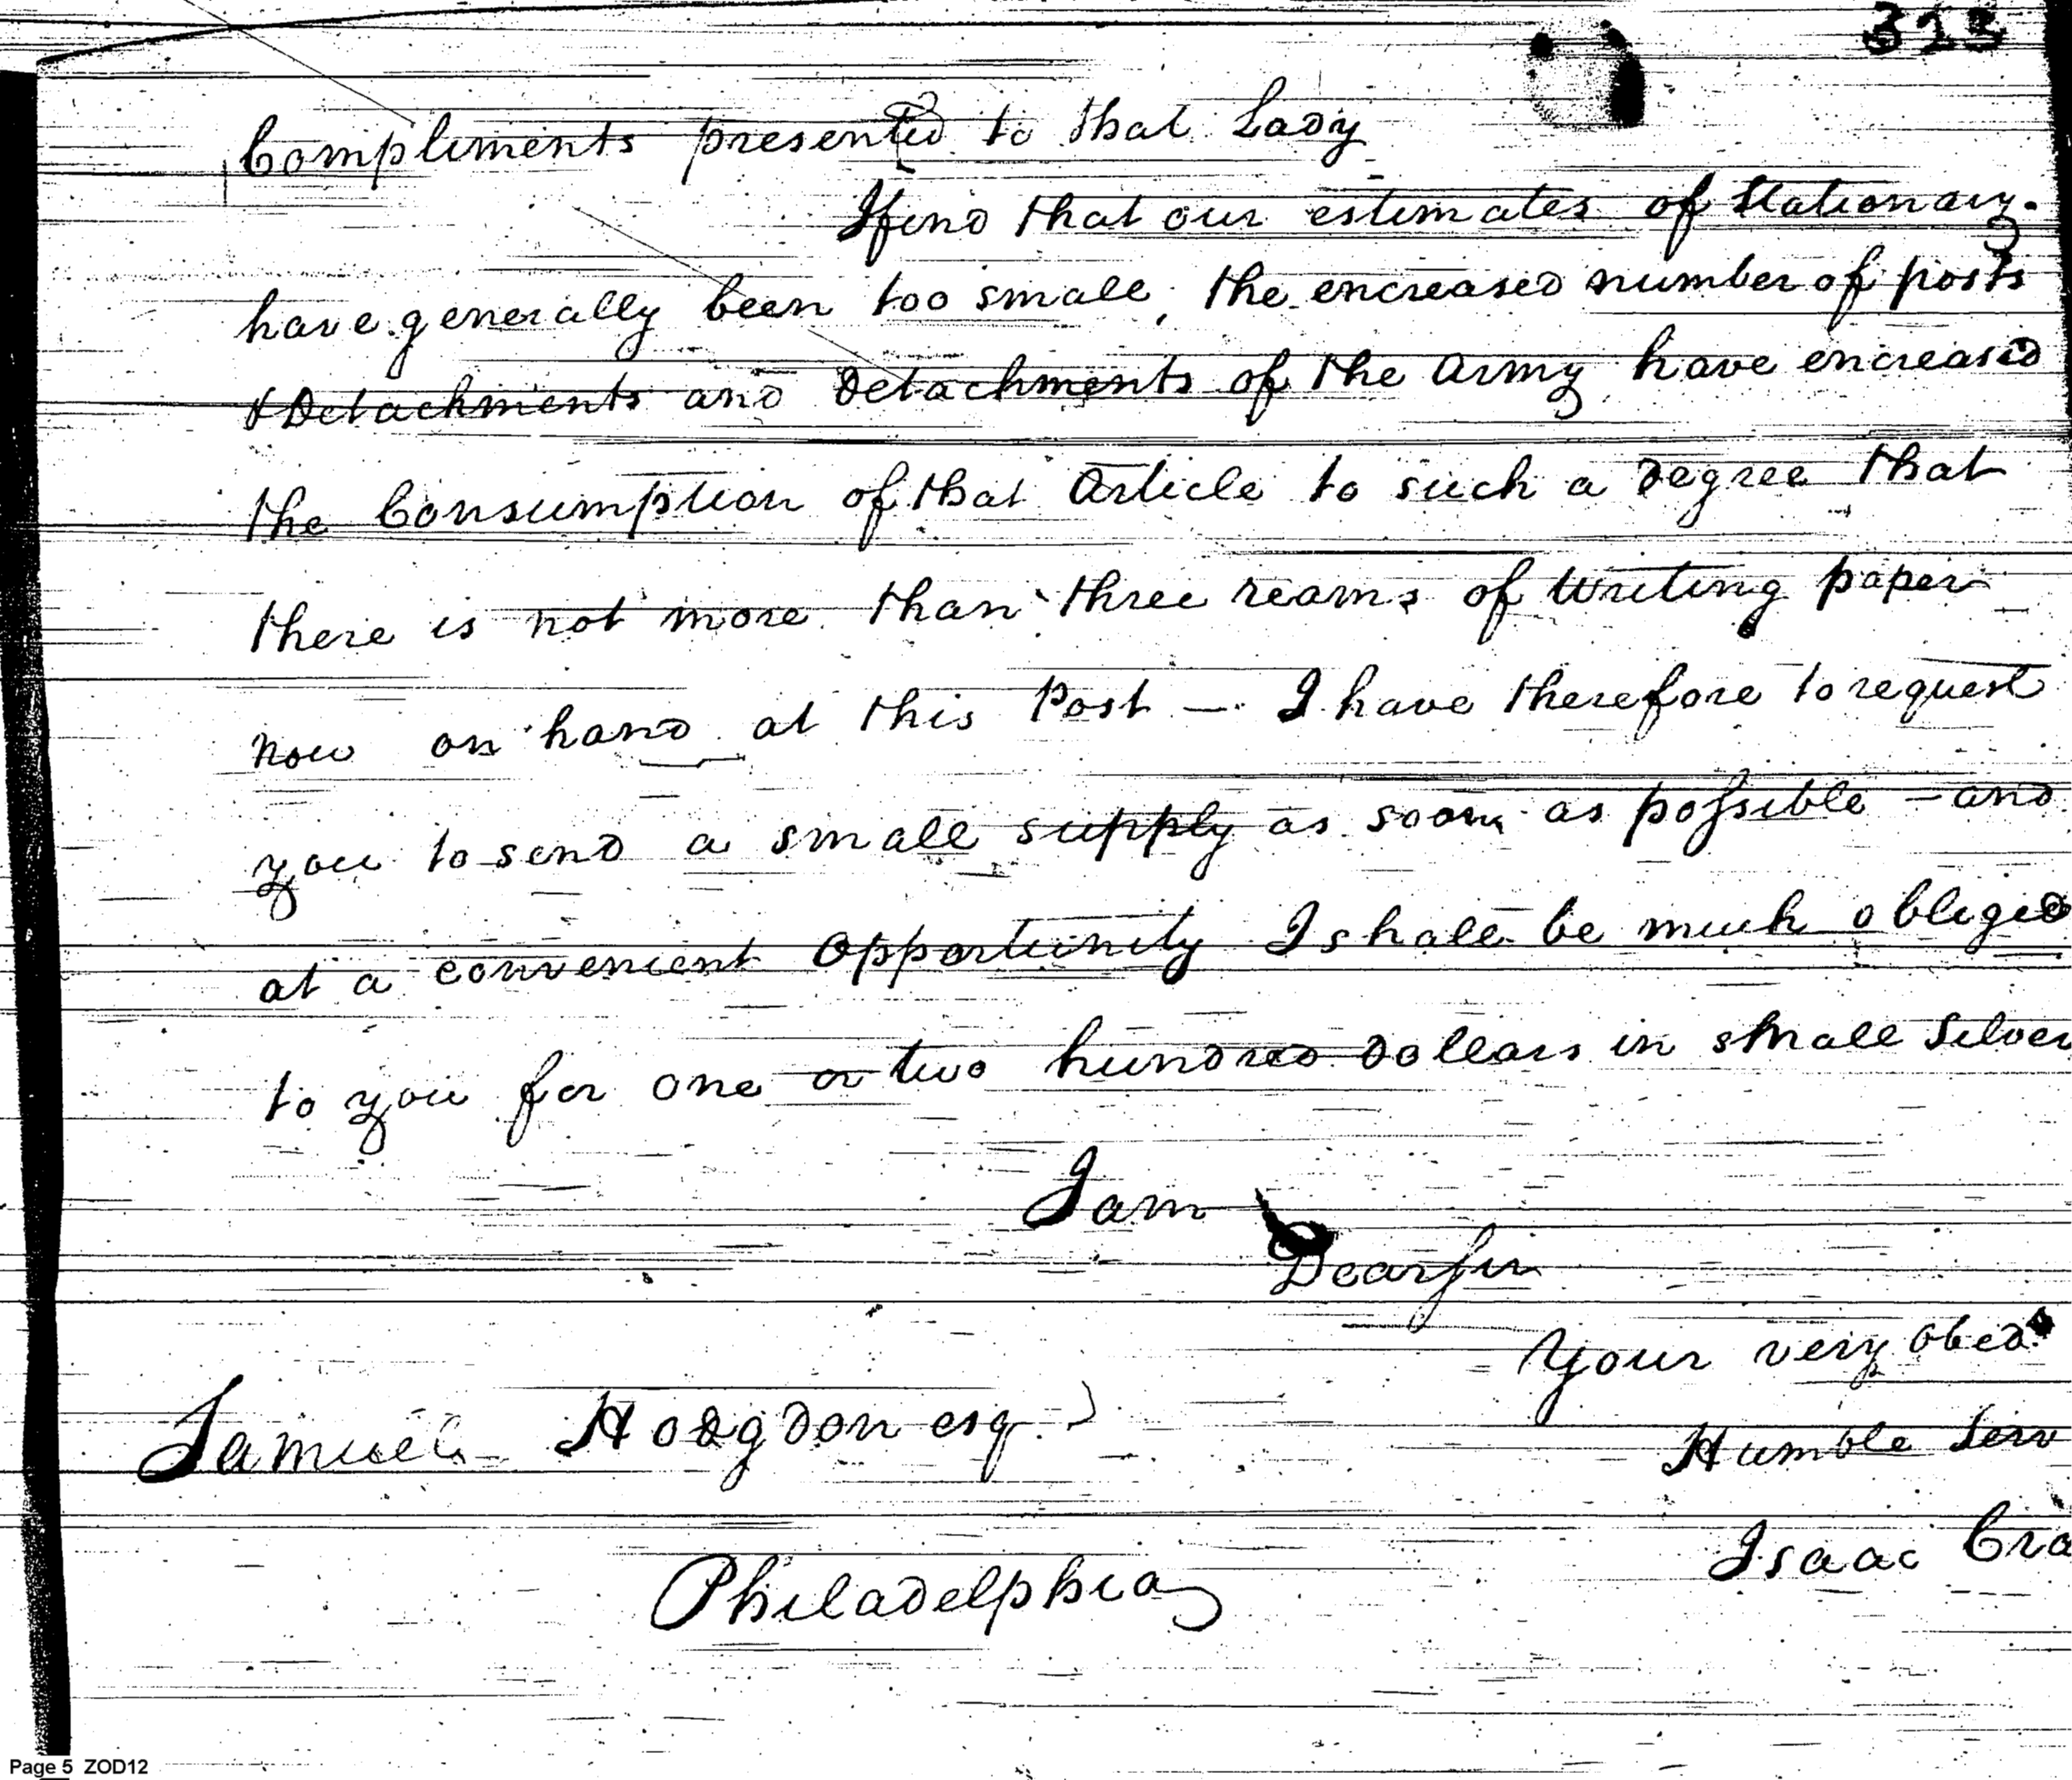 313
Compliments presented to that Lady
I find that our estimates of Stationary.
have generally been too small, the encreased number of posts
& Detachments and Detachments of the Army have encreased
the Consumption of that Article to such a Degree that
there is not more than three reams of Writing paper
now on hand at this Post — I have therefore to request
you to send a small supply as soon as possible — and
at a convenient Opportunity I shall be much obliged
to you for one or two hundred Dollars in small Silver
I am
Dear sir
Your very obed
Humble Serv
Samuel Hodgdon esq
Isaac Cra
Philadelphia
Page 5 ZOD12